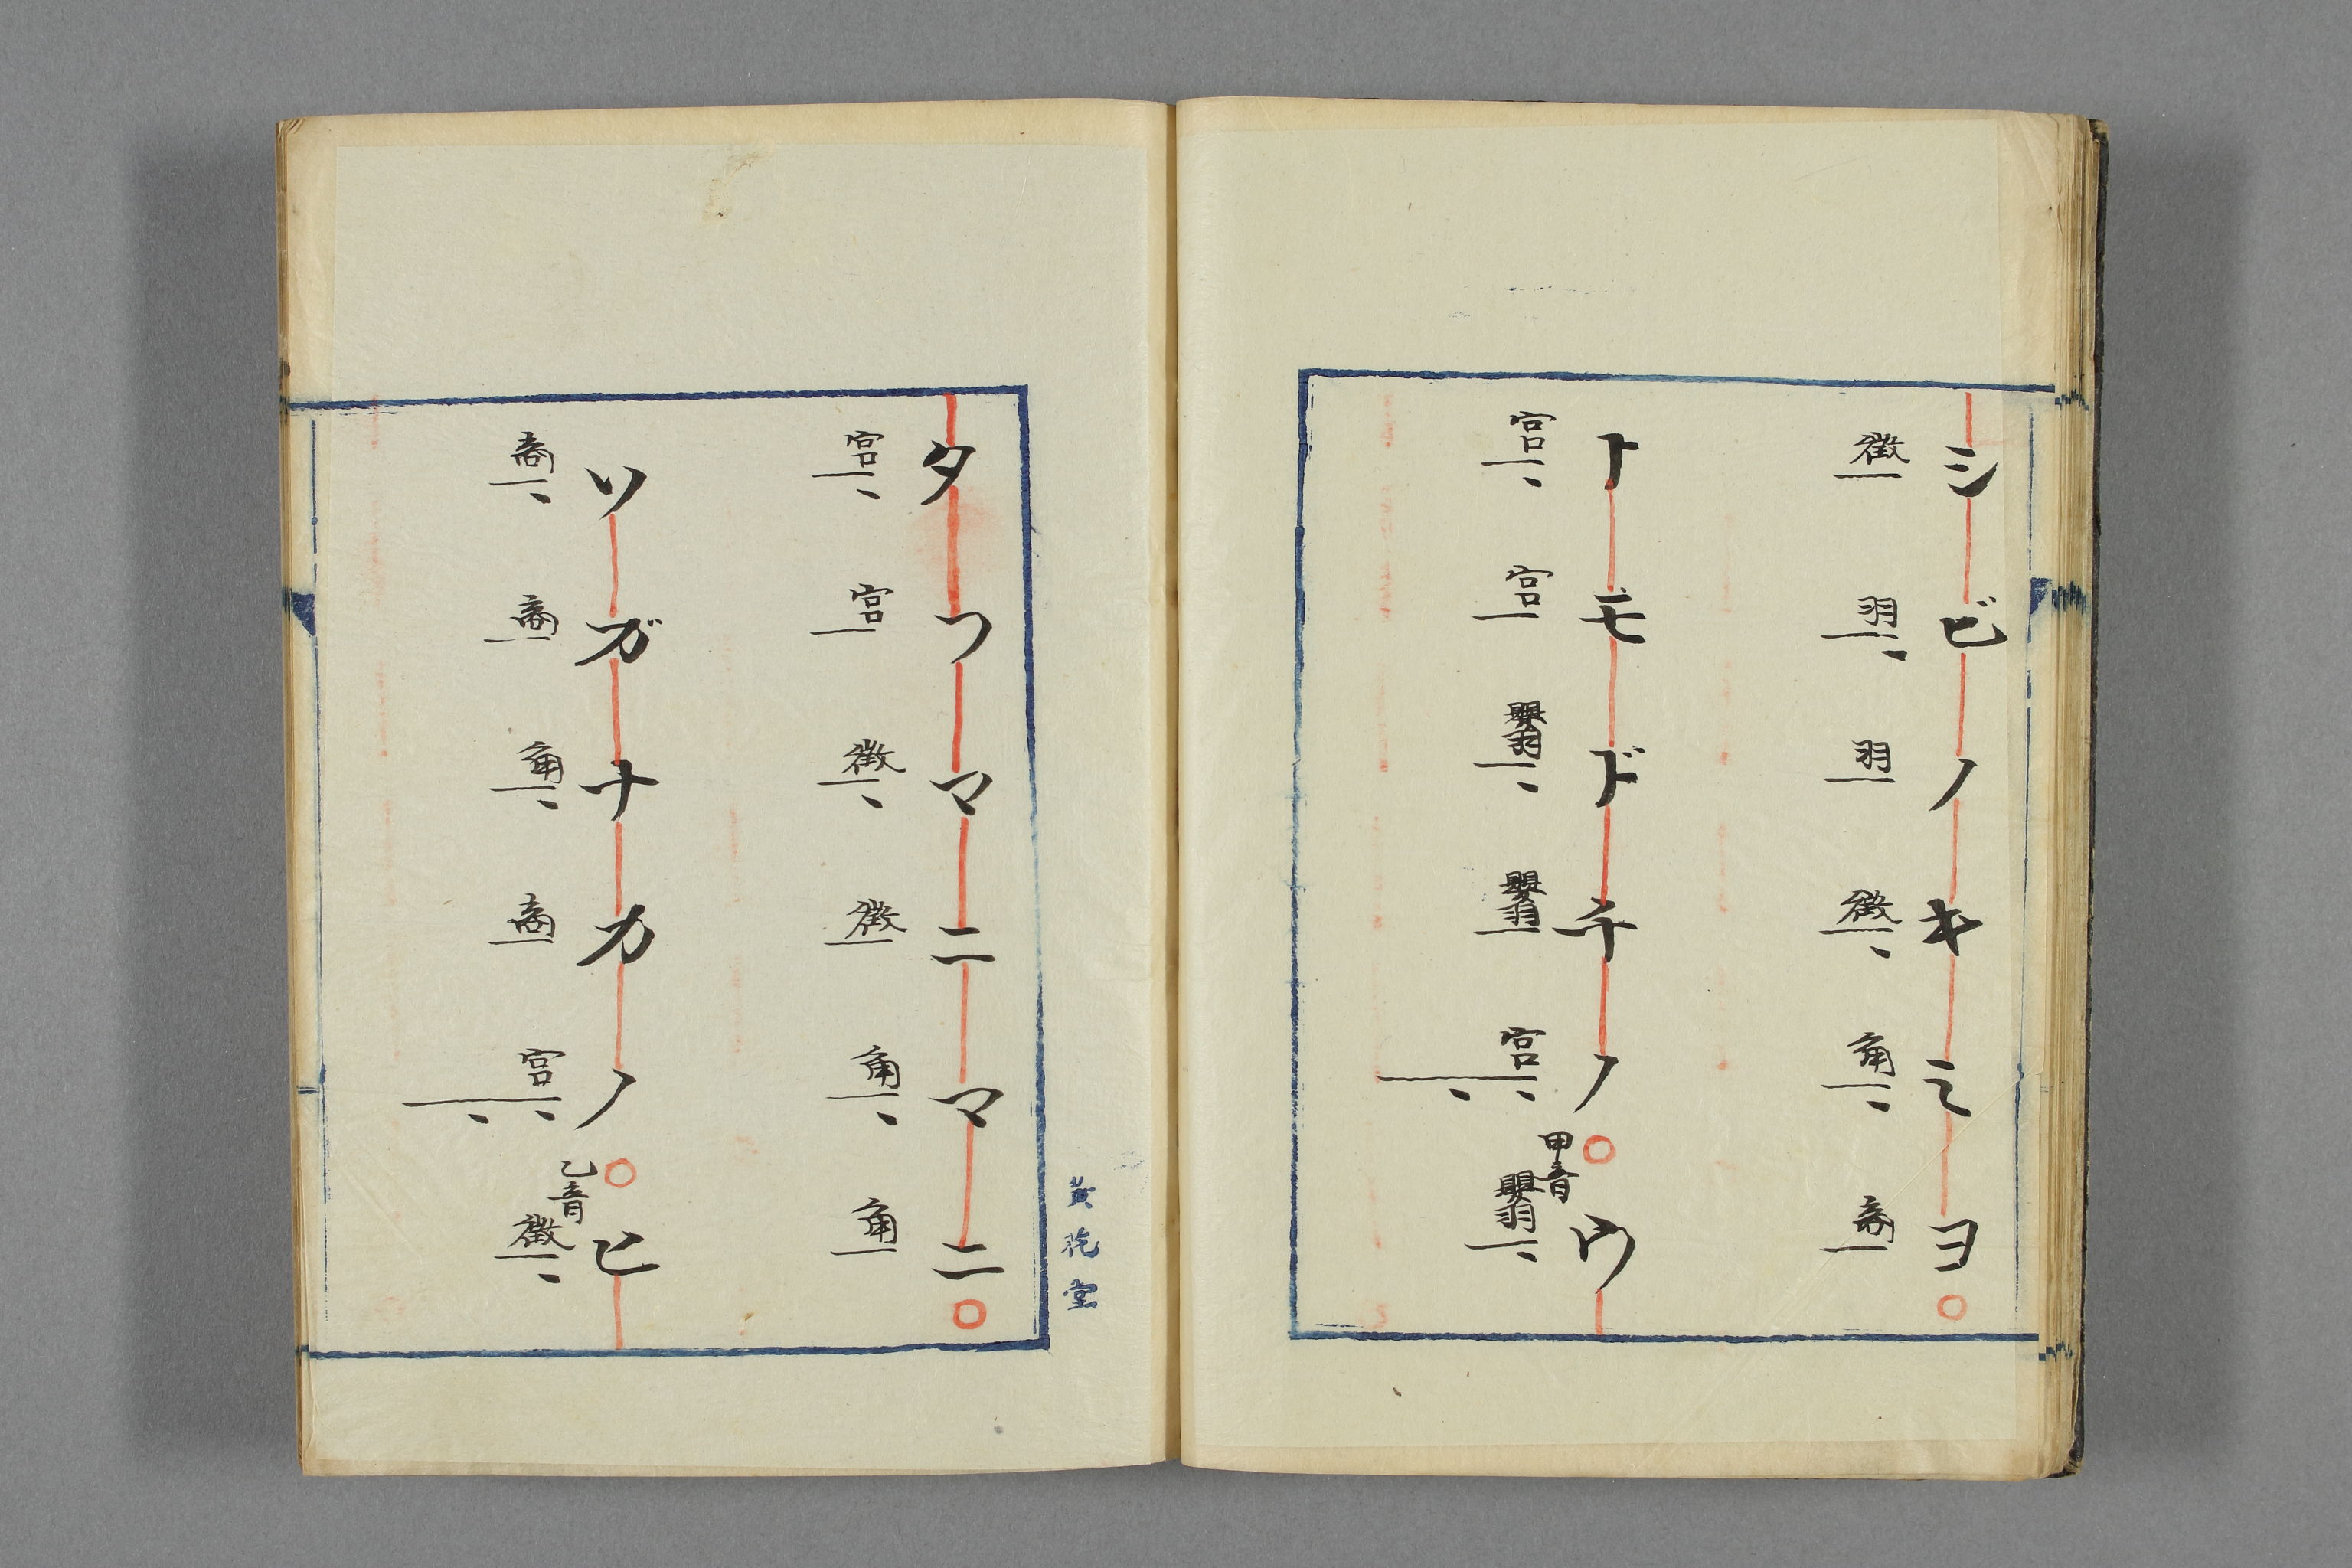 シビノキミヨ
徴羽羽徴角商
トモドチノ
宮宮嬰羽嬰羽宮
甲音
ウ
嬰羽
タフマニマニ
宮宮徴徴角角
ソガナカノ
商商角商宮
乙音
ヒ
徴